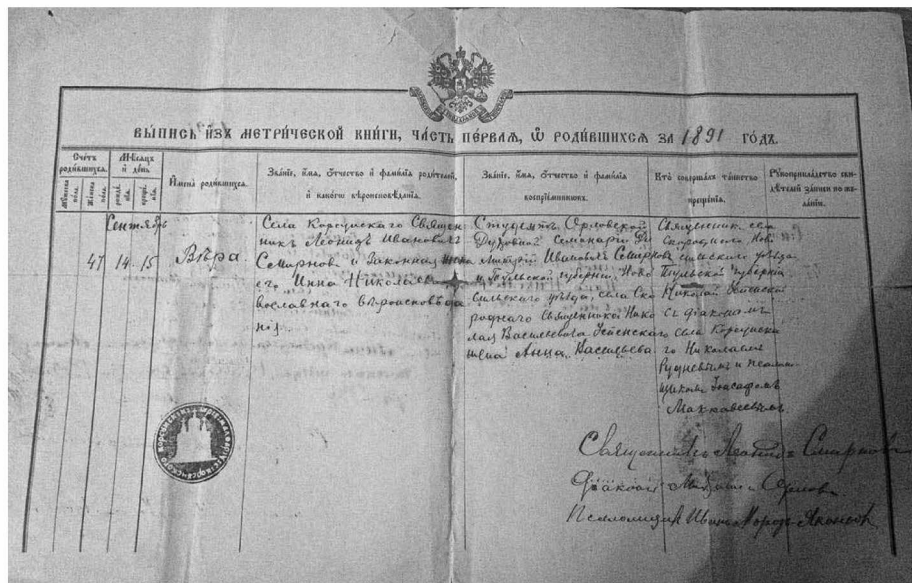 ВЫПИСЬ ИЗЪ МЕТРИЧЕСКОЙ КНИГИ, ЧАСТЬ ПЕРВАЯ, Ѿ РОДИВШИХСЯ ЗА 1891 ГОДЪ.
Счетъ родившихся.
Мужеска пола.
Женска пола.
Мѣсяцъ и день
рожденія.
крещенія.
Имена родившихся.
Званіе, имя, отчество и фамилія родителей,
и какого вѣроисповѣданія.
Званіе, имя, отчество и фамилія
воспріемниковъ.
Кто совершалъ таинство
крещенія.
Рукоприкладство сви-
дѣтелей записи по же-
ланію.
Сентябрь
47 14 15
Вѣра
Села Священ
никъ Леонидъ Ивановичъ
Смирнов и Законная жена
его Инна Николаева
вославнаго вѣроисповѣда
нія.
Студентъ Орловской
Духовной Семинаріи
Дмитрій Ивановичъ Смирнов
и Тульской губерніи, Ново
сильскаго уѣзда, села Ско
роднаго Священника Нико
лая Васильевича Успенскаго
жена Анна Васильева
Священник села
Скороднаго Нов
сильскаго уѣзда
Тульской губерніи
Николай Успенскій
съ діакономъ
села
го Николаемъ
Рудневымъ и псалом
щикомъ Іоасафомъ
Маккавеевымъ
Священникъ Леонидъ Смирнов
Діаконъ Орлов
Псаломщикъ